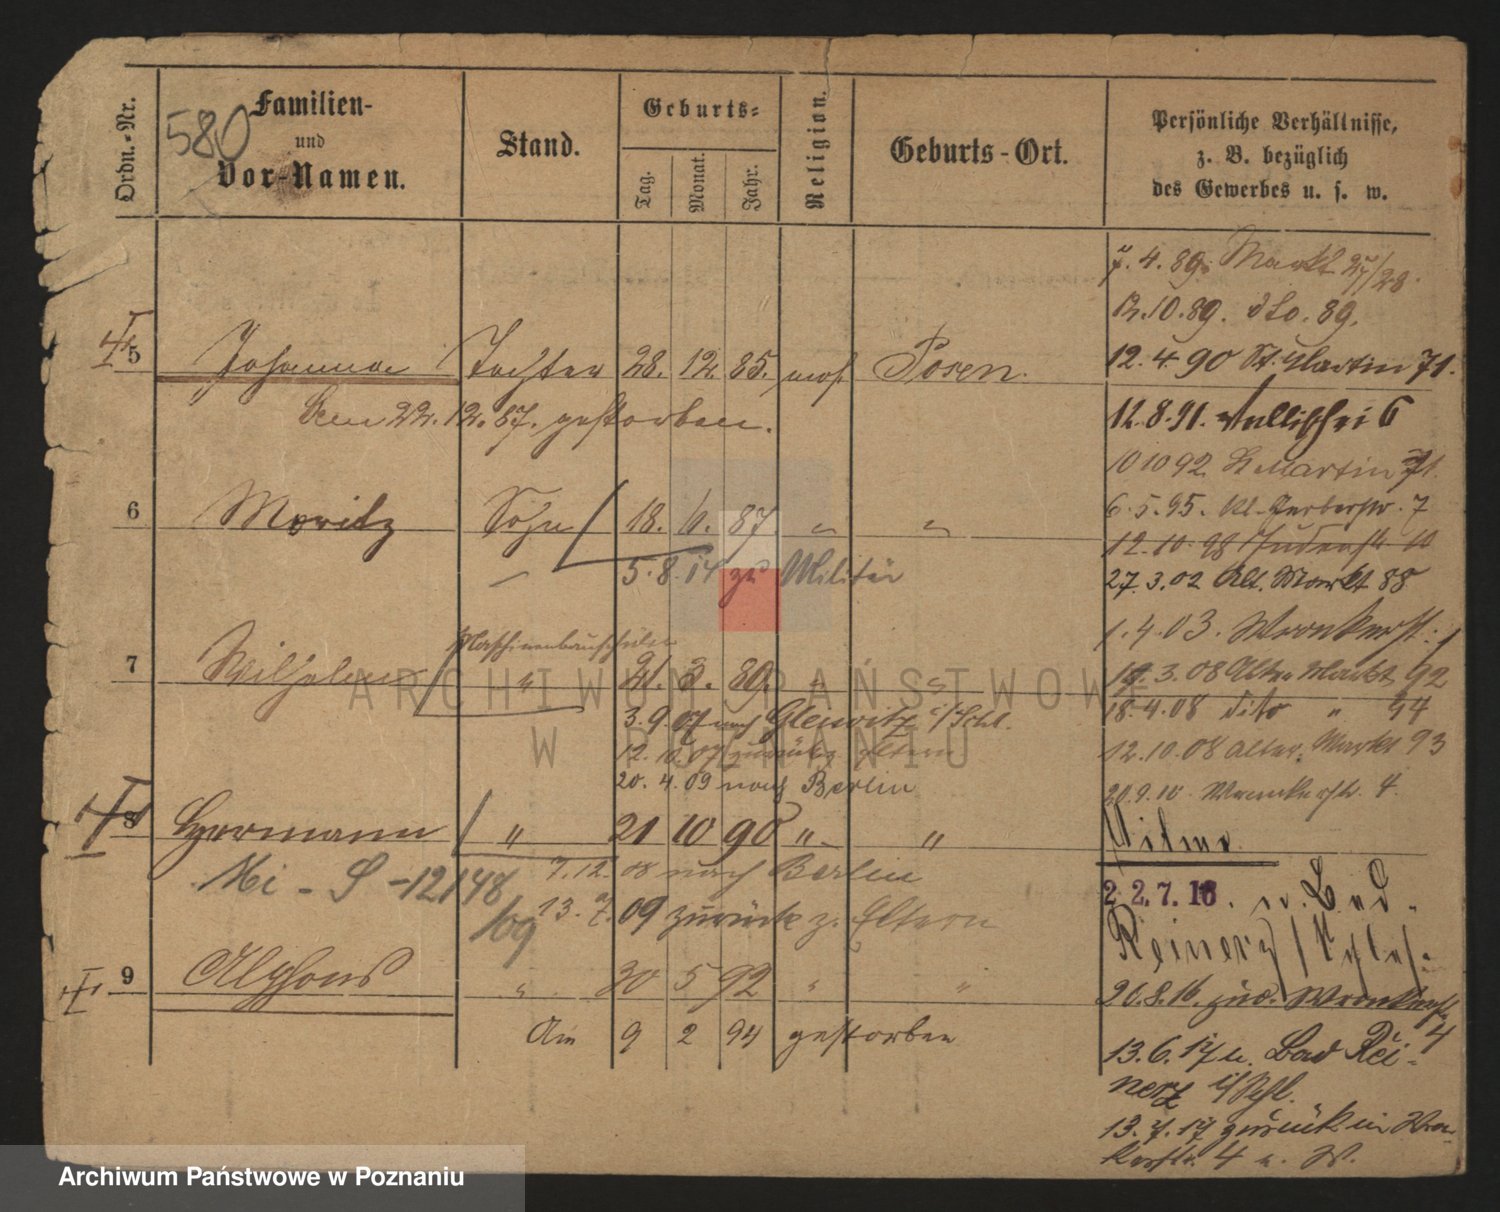 Ordn.-Nr.
580
Familien-
und
Vor-Namen.
Stand.
Geburts-
Tag.
Monat.
Jahr.
Religion.
Geburts-Ort.
Persönliche Verhältnisse,
z. B. bezüglich
des Gewerbes u. s. w.
4. 89. Markt 27/28.
12.10.89. dto. 89.
5 Johanna Tochter 28. 12. 85. mos. Posen.
12.4.90 St. Martin 71.
Den 22.12.87. gestorben.
12.8.91. Wallischei 6
10 10 92. St. Martin 71.
6 Moritz Sohn 18. 6. 87 " "
6.5.95. Kl. Gerberstr. 7
12.10.98 Judenstr. 10
5.8.14 zu Militär
27.3.02 Alt. Markt 88
1.4.03. Wronkerstr.
Maschinenbauschüler
7 Wilhelm " 21. 3. 89. " "
19.3.08 Alter Markt 92
3.9.07 nach Gleiwitz i/Schl.
18.4.08 dito " 94
12.10.07 zurück Eltern
12.10.08 Alter Markt 93
20.4.09 nach Berlin
20.9.10 Wronkerstr. 4.
8 Hermann " 21 10 90 " "
Wilme
7.12.08 nach Berlin
Mi - S - 12148/09
22.7.16. n. Bad
13.7.09 zurück z. Eltern
Reinerz/Schles.
9 Alphons " 30 5 92 " "
20.8.16. zur. Wronkerstr. 4
Am 9 2 94 gestorben
13.6.17 n. Bad Rei-
nerz i/Schl.
13.7.17 zurück in Wron-
kerstr. 4 n. W.
ARCHIWUM PAŃSTWOWE
W POZNANIU
Archiwum Państwowe w Poznaniu